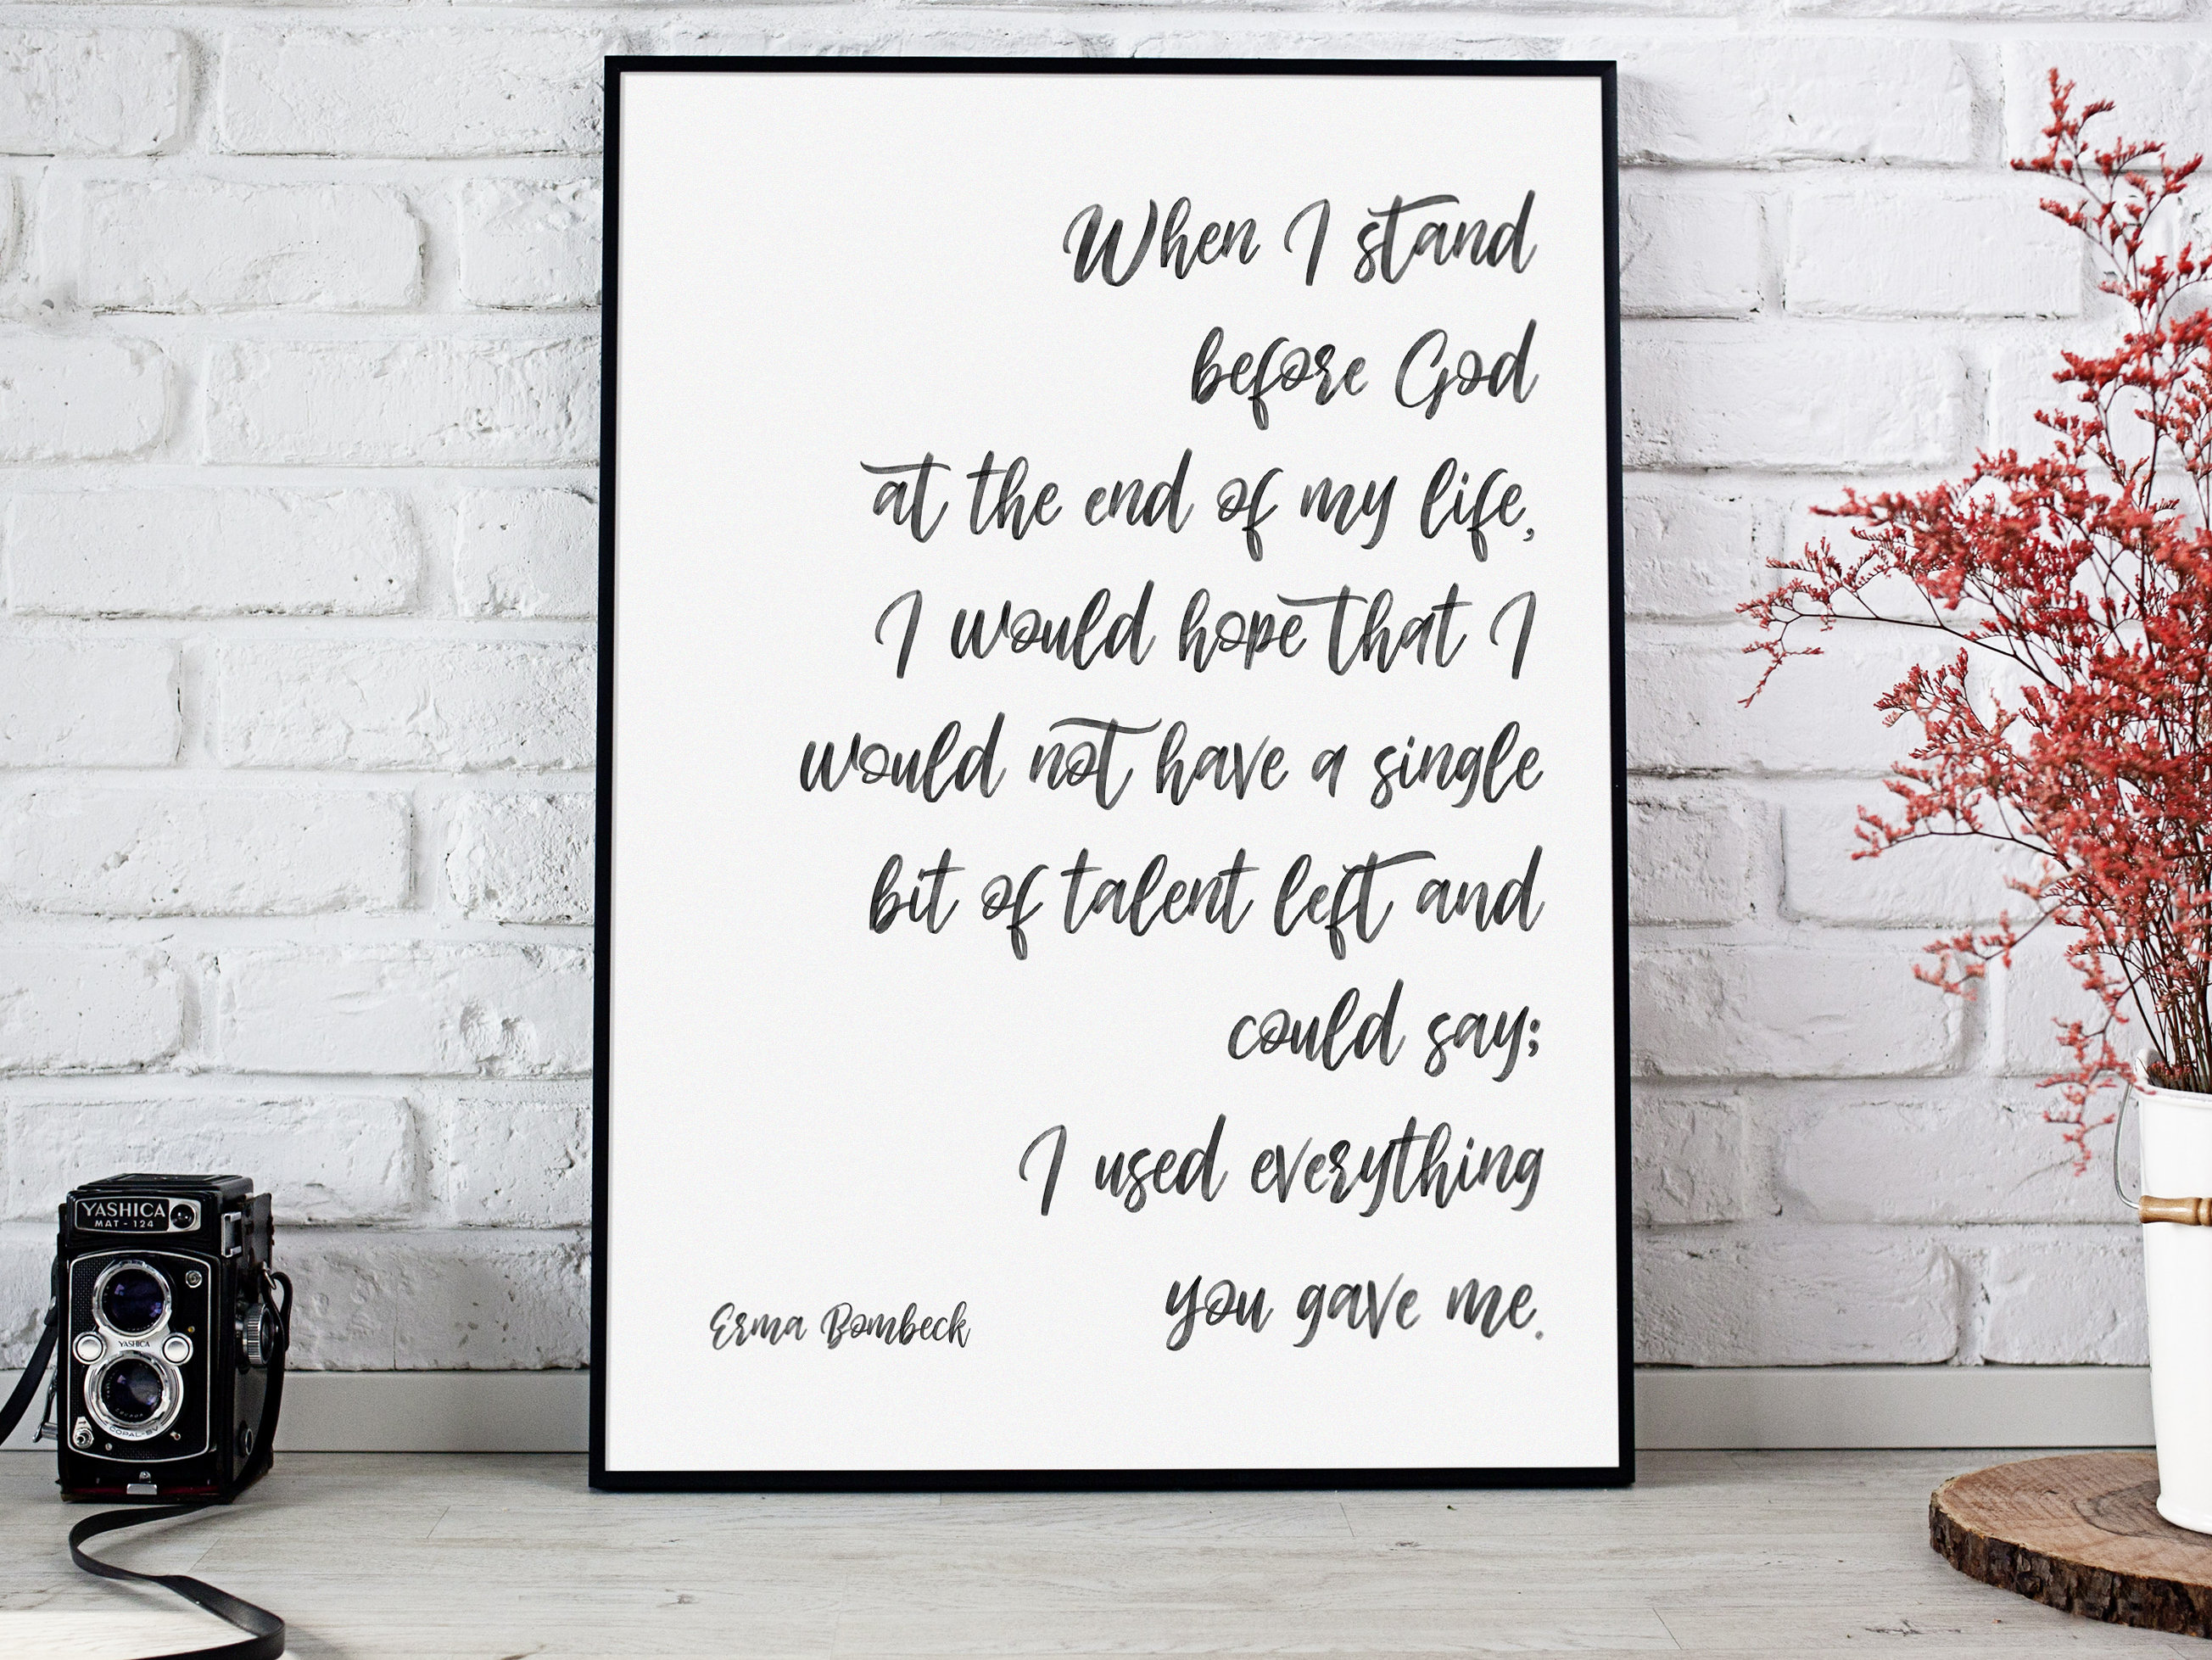 When I stand
before God
at the end of my life,
I would hope that I
would not have a single
bit of talent left and
could say;
I used everything
you gave me.
Erma Bombeck
YASHICA
MAT-124
YASHICA
COPAL-SV